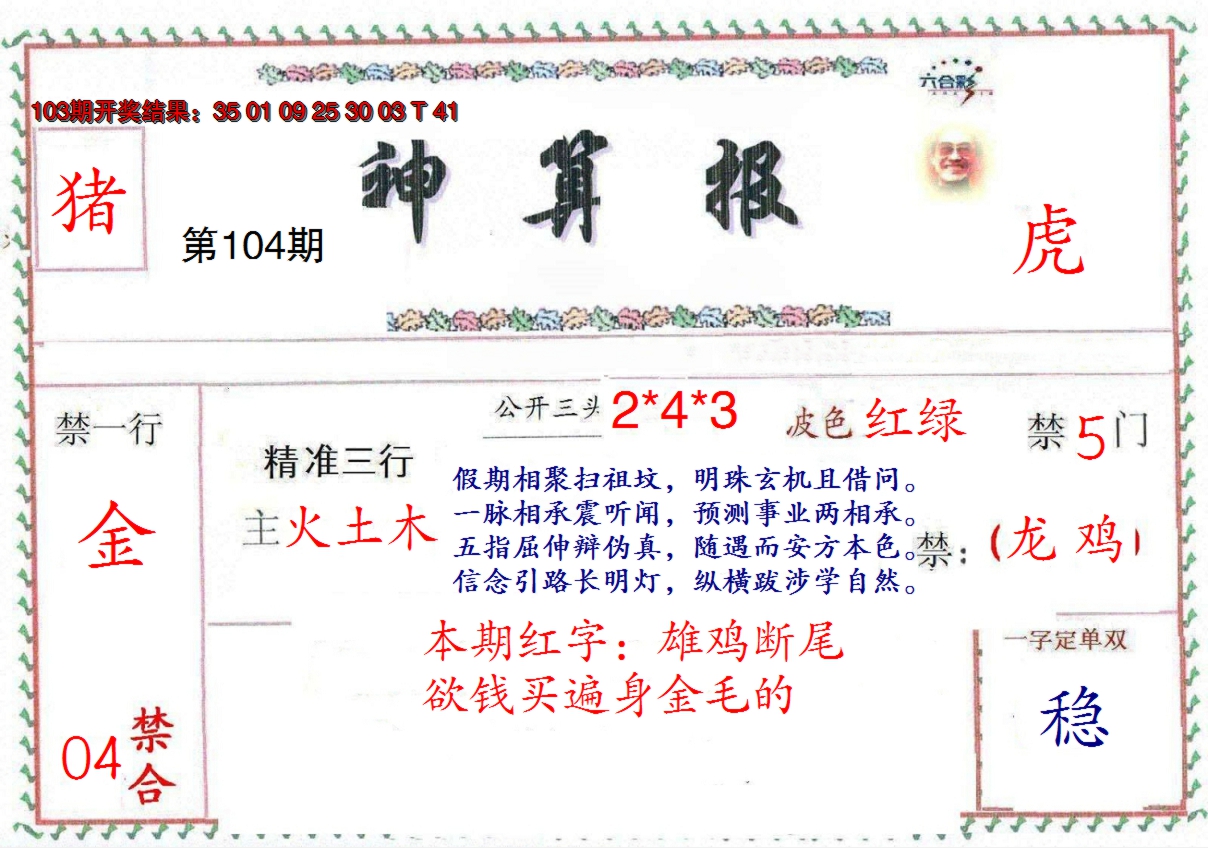 六合彩
103期开奖结果：35 01 09 25 30 03 T 41
神算报
猪
第104期
虎
禁一行
金
04
禁合
精准三行
主火土木
公开三头
2*4*3
波色 红绿
禁5门
假期相聚扫祖坟，明珠玄机且借问。
一脉相承震听闻，预测事业两相承。
五指屈伸辩伪真，随遇而安方本色。
信念引路长明灯，纵横跋涉学自然。
禁：（龙 鸡）
本期红字：雄鸡断尾
欲钱买遍身金毛的
一字定单双
稳